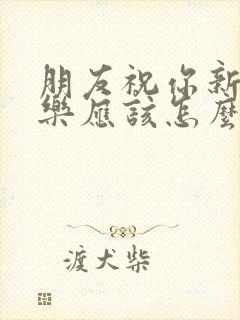 朋友祝你新
樂應該怎麼
渡犬柴